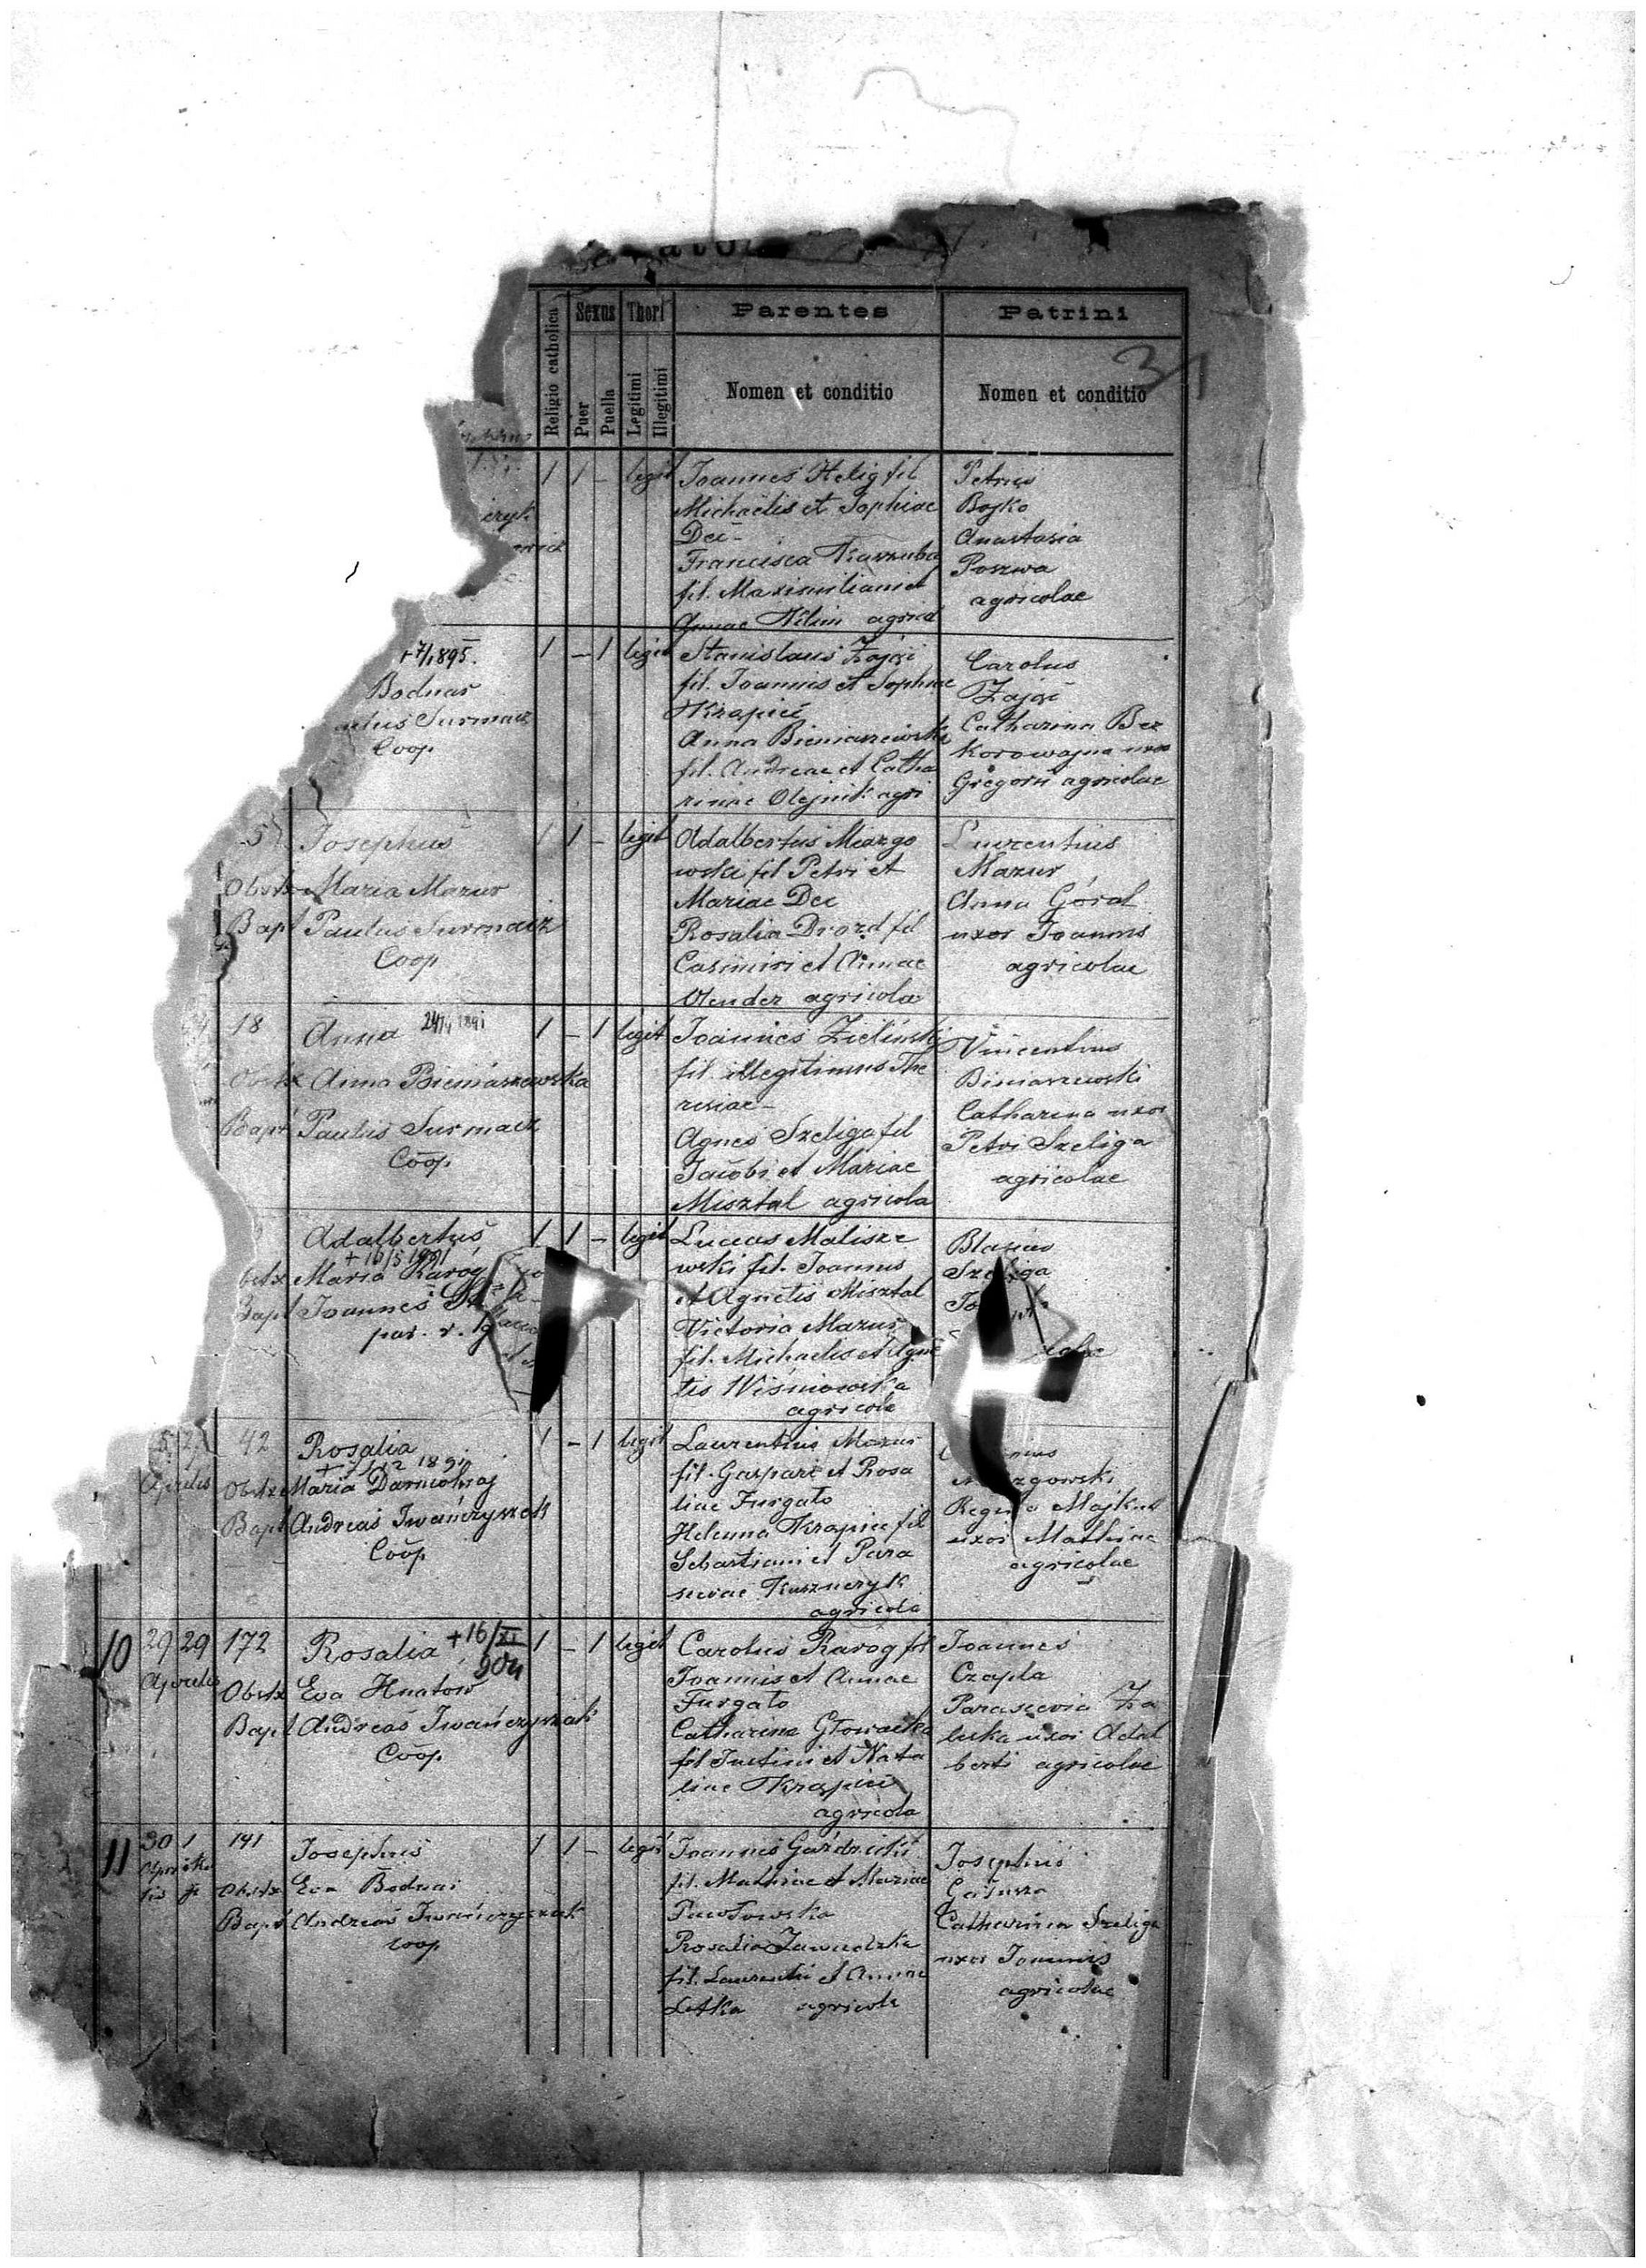 Religio catholica
Sexus
Thori
Parentes
Patrini
31
Puer
Puella
Legitimi
Illegitimi
Nomen et conditio
Nomen et conditio
1 1 - legit
Joannes Helig fil
Michaëlis et Sophiae
Dec -
Francisca Kaszuba
fil. Maximiliani et
Annae Wilin agricol
Petrus
Bojko
Anastasia
Poszwa
agricolae
+ 7/1895.
Bodnar
Surmacz
Coop
1 - 1 legit
Stanislaus Zając
fil. Joannis et Sophiae
Krapiec
Anna Bieniaszewska
fil. Andreae et Catha
rinae Olejnik agri
Carolus
Zając
Catharina Bez
Korowajna uxor
Gregorii agricolae
5
Josephus
Obstx Maria Mazur
Bapt Paulus Surmacz
Coop
1 1 - legit
Adalbertus Miazgo
wski fil Petri et
Mariae Dec
Rosalia Drozd fil
Casimiri et Annae
Olender agricola
Laurentius
Mazur
Anna Góral
uxor Joannis
agricolae
18
Anna
Obstx Anna Bieniaszewska
Bapt Paulus Surmacz
Coop.
1 - 1 legit
Joannes Zieliński
fil. illegitimus The
resiae -
Agnes Szeliga fil
Jacobi et Mariae
Misztal agricola
Vincentius
Biniaszewski
Catharina uxor
Petri Szeliga
agricolae
Adalbertus
+ 16/5 1891
Maria Karóg
Bapt Joannes
par. r. l
1 1 - legit
Lucas Malisze
wski fil. Joannis
et Agnetis Misztal
Victoria Mazur
fil. Michaelis et Agne
tis Wiśniowska
agricola
Blasius
Szeliga
42
Aprilis
Rosalia
Obstx Maria Darmohraj
Bapt Andreas Iwańczyszak
Coop
1 - 1 legit
Laurentius Mazur
fil. Gaspari et Rosa
liae Furgało
Helenna Krapiec fil
Sebastiani et Para
sceviae Kuszneryk
agricola
Majkut
uxor Mathiae
agricolae
10
29 29
Aprilis
172
Rosalia +16/XI
904
Obstx Eva Hnatow
Bapt Andreas Iwańczyszak
Coop
1 - 1 legit
Carolus Karog fil
Joannis et Annae
Furgało
Catharina Głowacka
fil Justini et Nata
liae Krapiec
agricola
Joannes
Czapla
Parascevia Za
łuska uxor Adal
berti agricolae
11
30 1
141
Josephus
Obstx Eva Bodnar
Bapt Andreas Iwańczyszak
coop
1 1 - legit
Joannes Gaździcki
fil. Mathiae et Mariae
Pawłowska
Rosalia Zawadzka
fil. Laurentii et Annae
Letka agricola
Josephus
Catharina Szeliga
uxor Joannis
agricolae